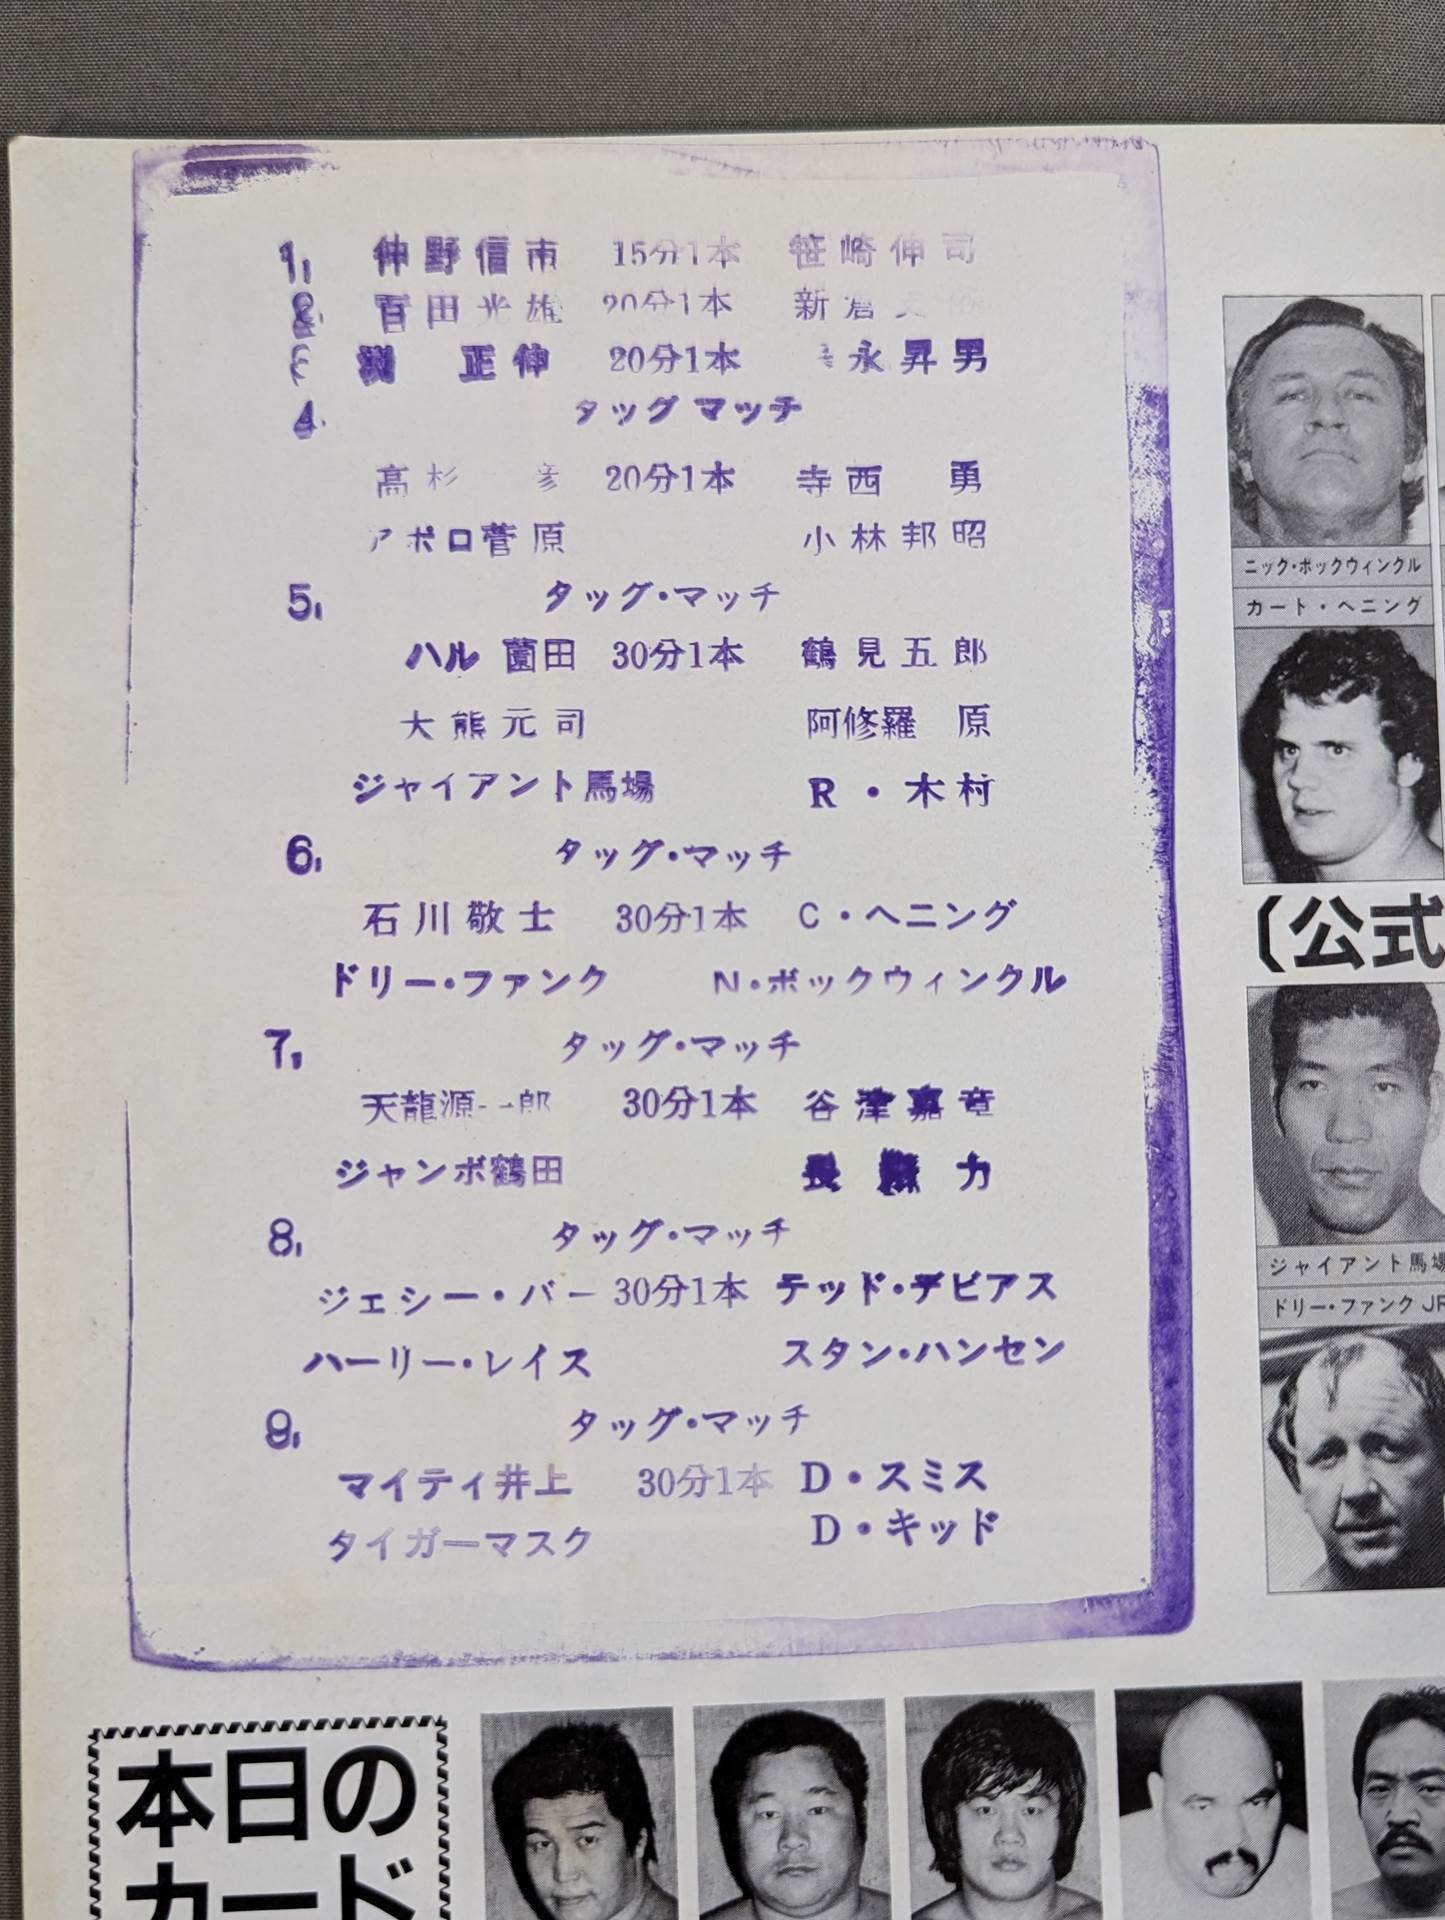 1, 仲野信市 15分1本 笹崎伸司
2. 百田光雄 20分1本 新倉
渕 正伸 20分1本 永昇男
4. タッグマッチ
高杉 20分1本 寺西 勇
アポロ菅原 小林邦昭
5, タッグ・マッチ
ハル 薗田 30分1本 鶴見五郎
大熊元司 阿修羅 原
ジャイアント馬場 R・木村
6, タッグ・マッチ
石川敬士 30分1本 C・ヘニング
ドリー・ファンク N・ボックウィンクル
7, タッグ・マッチ
天龍源一郎 30分1本 谷津嘉章
ジャンボ鶴田 長 力
8, タッグ・マッチ
ジェシー・バー 30分1本 テッド・デビアス
ハーリー・レイス スタン・ハンセン
9, タッグ・マッチ
マイティ井上 30分1本 D・スミス
タイガーマスク D・キッド
ニック・ボックウィンクル
カート・ヘニング
〔公式
ジャイアント馬場
ドリー・ファンクJR
本日の
カード